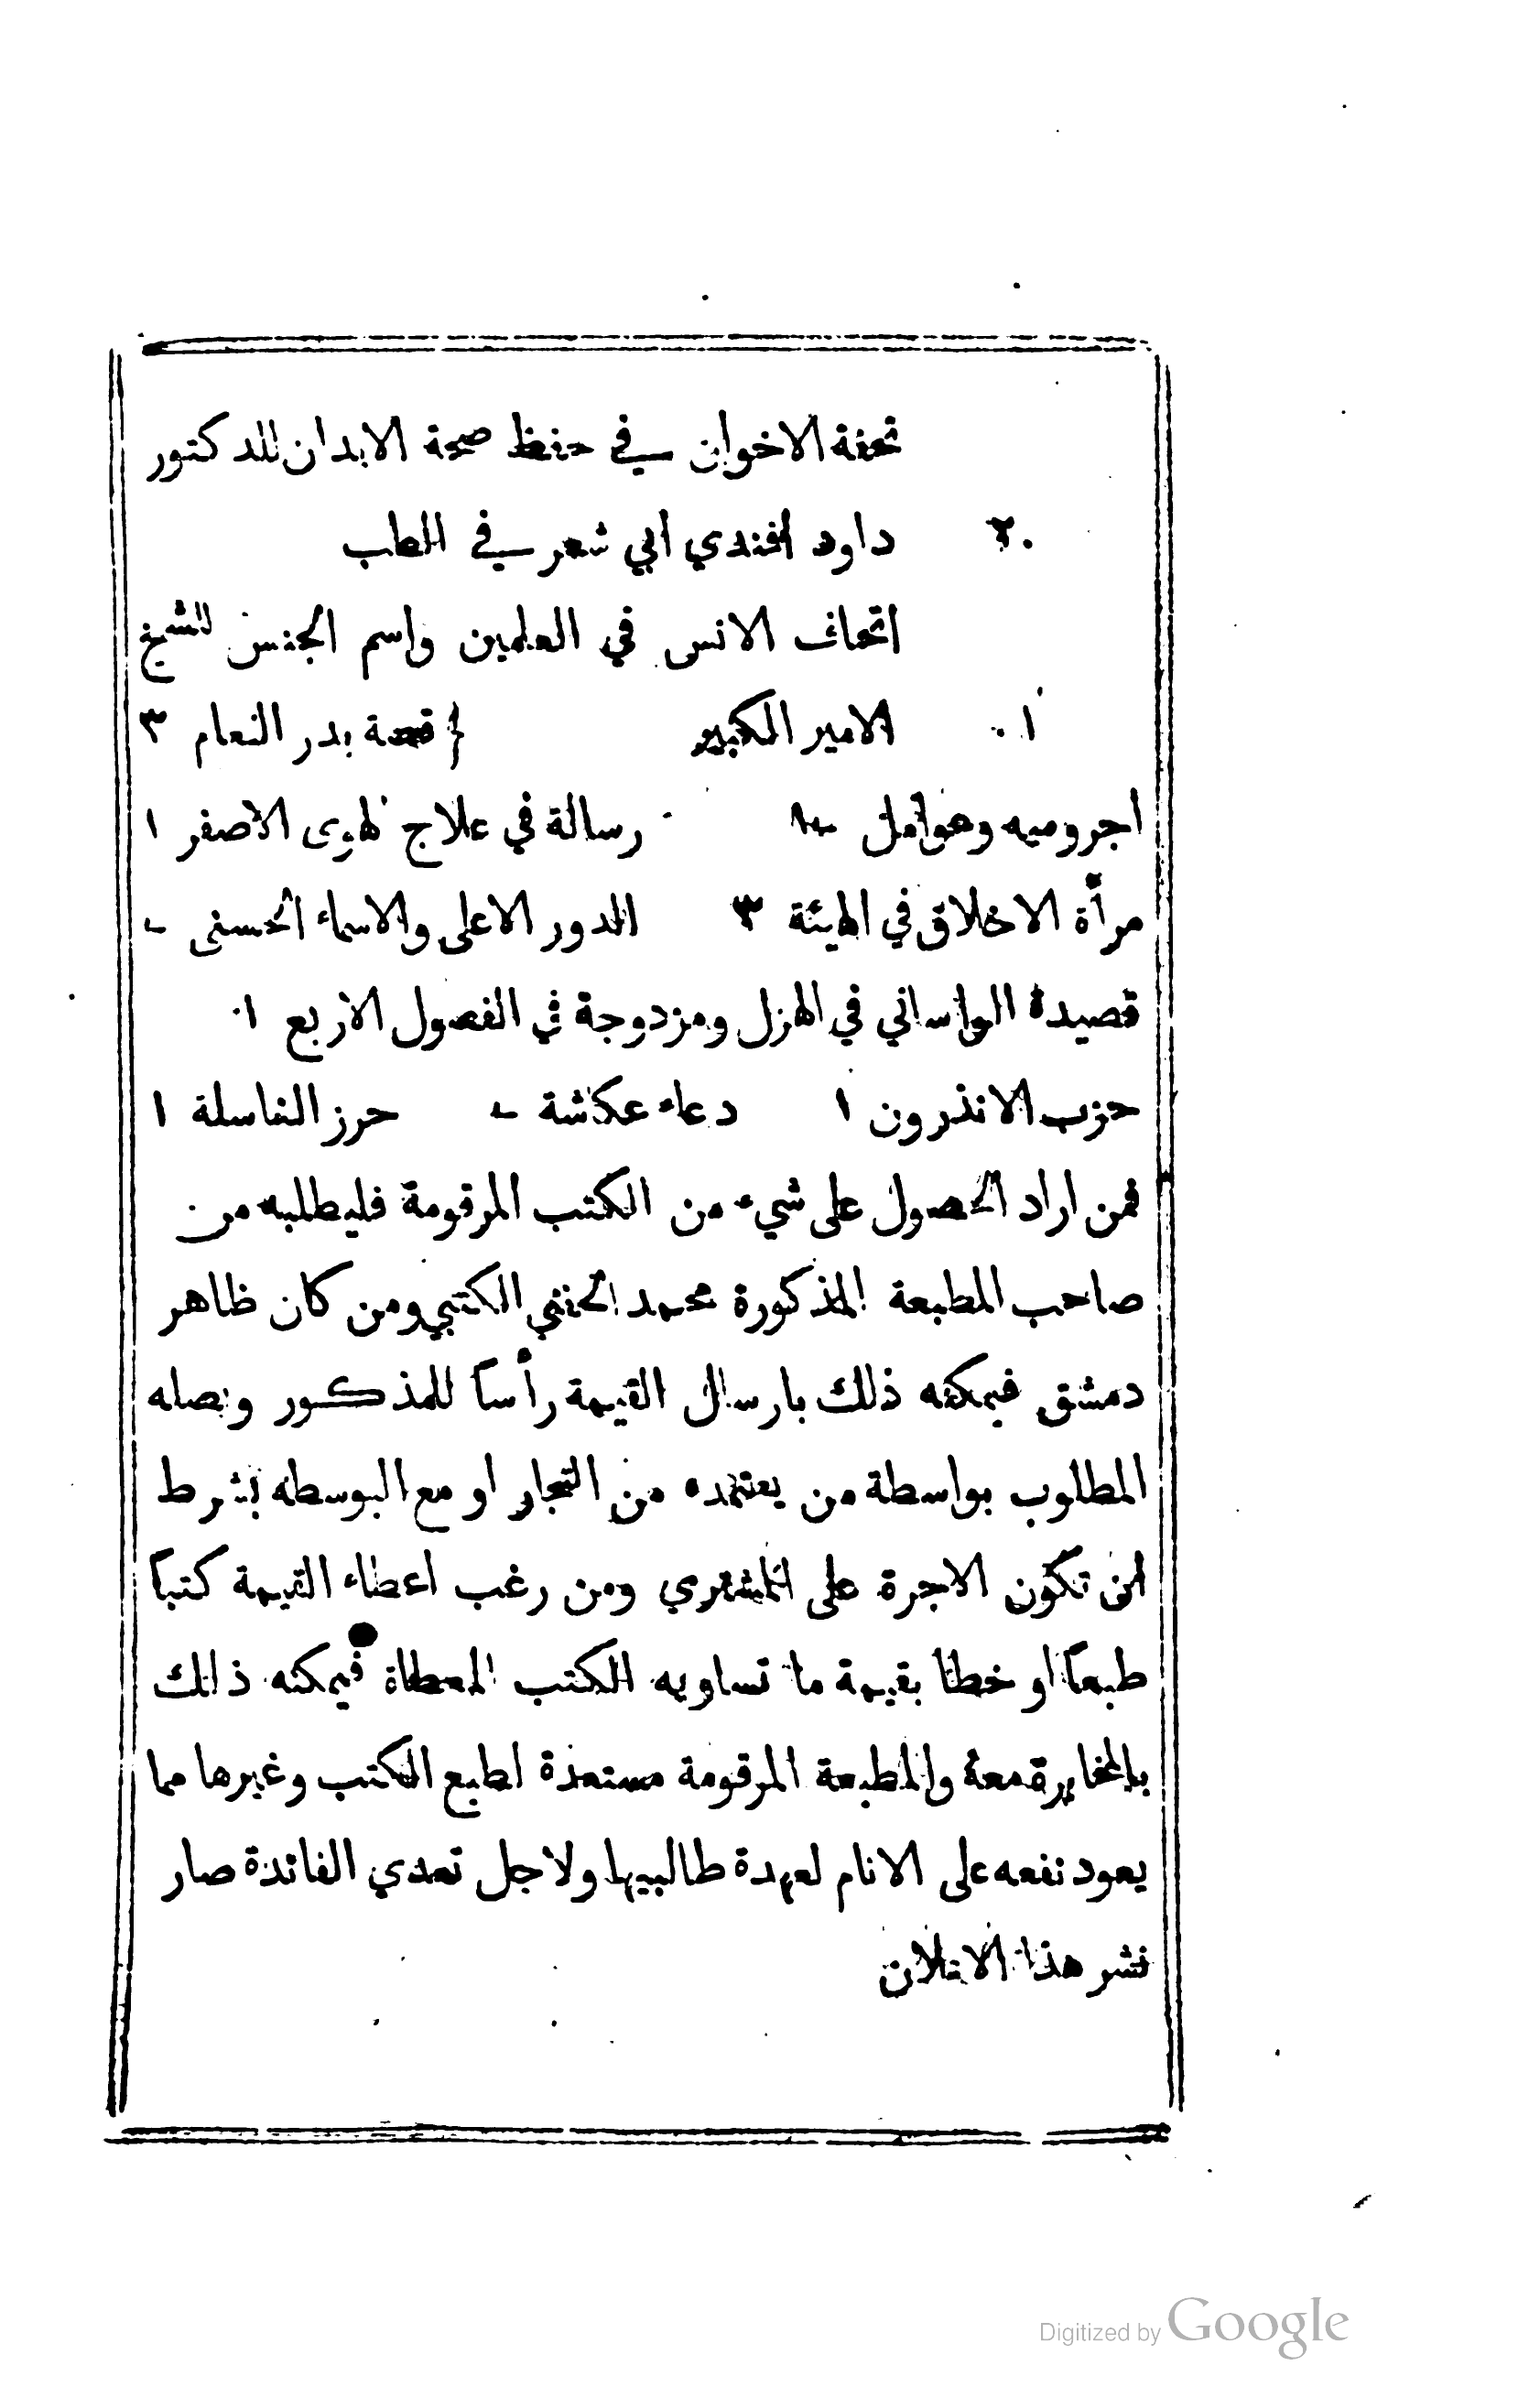 تحفة الاخوان في حفظ صحة الابدان للدكتور
٢٠ داود افندي ابي شعر في الطب
اتحاف الانس في العلمين واسم الجنس للشيخ
١٠ الامير الكبير { قصة بدر النعام ٣
اجروميه وعوامل رسالة في علاج لهوى الاصفر ١
مرأة الاخلاق في الهيئة ٣ الدور الاعلى والاسماء الحسنى
قصيدة الواساني في الهزل ومزدوجة في الفصول الاربع ١٠
حزب الاندرون ١ دعاء عكاشة حرز الغاسلة ١
فمن اراد الحصول على شيء من الكتب المرقومة فليطلبه من
صاحب المطبعة المذكورة محمد الحنفي الكتبي ومن كان ظاهر
دمشق فيمكنه ذلك بارسال القيمة رأساً للمذكور ويصله
المطلوب بواسطة من يعتمده من التجار او مع البوسطه بشرط
ان تكون الاجرة على المشتري ومن رغب اعطاء القيمة كتباً
طبعاً او خطا بقيمة ما تساويه الكتب المعطاة فيمكنه ذلك
بالمخابرة معه والمطبعة المرقومة مستعدة لطبع الكتب وغيرها مما
يعود نفعه على الانام لعهدة طالبيها ولاجل تعدي الفائدة صار
نشر هذا الاعلان
Digitized by Google